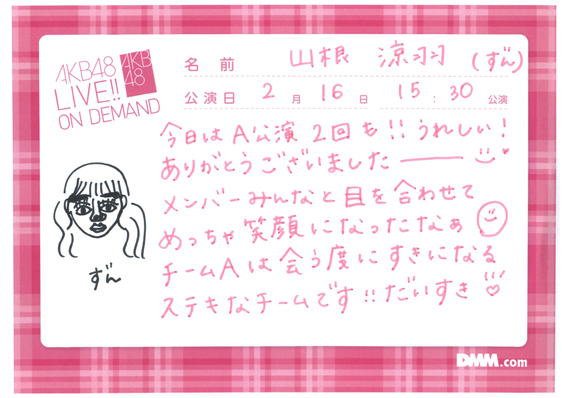 AKB48
LIVE!!
ON DEMAND
AKB
48
名前 山根 涼羽 (ずん)
公演日 2月16日 15:30公演
今日はA公演2回も!!うれしい!
ありがとうございましたーーー
メンバーみんなと目を合わせて
めっちゃ笑顔になったなぁ
チームAは会う度にすきになる
ステキなチームです!!だいすき
ずん
DMM.com